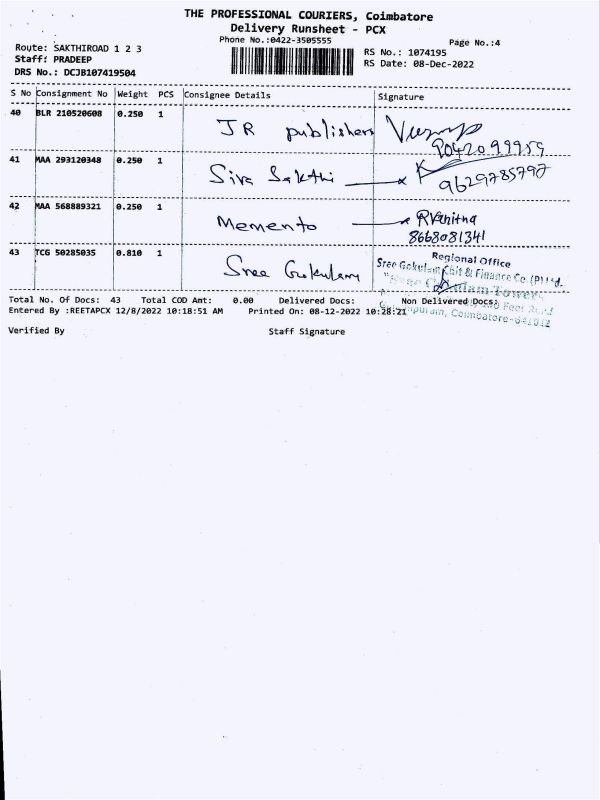 THE PROFESSIONAL COURIERS, Coimbatore
Delivery Runsheet - PCX
Phone No.:0422-3505555
Page No.:4
Route: SAKTHIROAD 1 2 3
RS No.: 1074195
Staff: PRADEEP
RS Date: 08-Dec-2022
DRS No.: DCJB107419504
S No Consignment No Weight PCS Consignee Details Signature
40 BLR 210520608 0.250 1 JR publishers
9042099959
41 MAA 293120348 0.250 1 Siva Sakthi
9629785797
42 MAA 568889321 0.250 1 Memento RVanitha
8668081341
43 TCG 50285035 0.810 1 Sree Gokulam
Regional Office
Sree Gokulam Chit & Finance Co (P) Ltd.
"Sree Gokulam Tower"
Feet Road
Coimbatore-641012
Total No. Of Docs: 43 Total COD Amt: 0.00 Delivered Docs: Non Delivered Docs:
Entered By :REETAPCX 12/8/2022 10:18:51 AM Printed On: 08-12-2022 10:28:21
Verified By Staff Signature